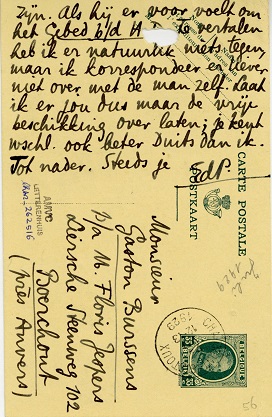 zijn. Als hij er voor voelt om
het Gebed b/d H te vertalen
heb ik er natuurlik niets tegen,
maar ik korrespondeer er liever
niet over met de man zelf. Laat
ik er jou dus maar de vrije
beschikking over laten; je kent
wschl. ook beter Duits dan ik.
Tot nader. Steeds je
EdP.
CARTE POSTALE
POSTKAART
AMVC
LETTERENHUIS
Monsieur
Gaston Burssens
p/a M. Floris Jespers
Liersche Steenweg 102
Boerchout
(près Anvers)
1929
BELGIQUE
35
56